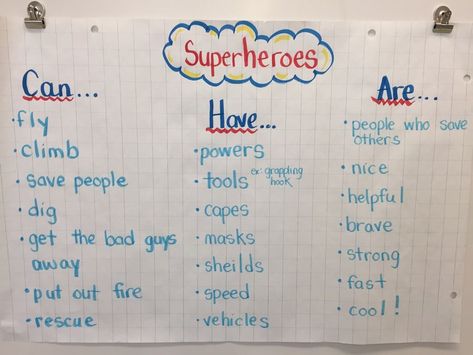 Superheroes
Can...
• fly
• climb
• save people
• dig
• get the bad guys
away
• put out fire
• rescue
Have...
• powers
• tools ex: grappling
hook
• capes
• masks
• sheilds
• speed
• vehicles
Are...
• people who save
others
• nice
• helpful
• brave
• strong
• fast
• cool!